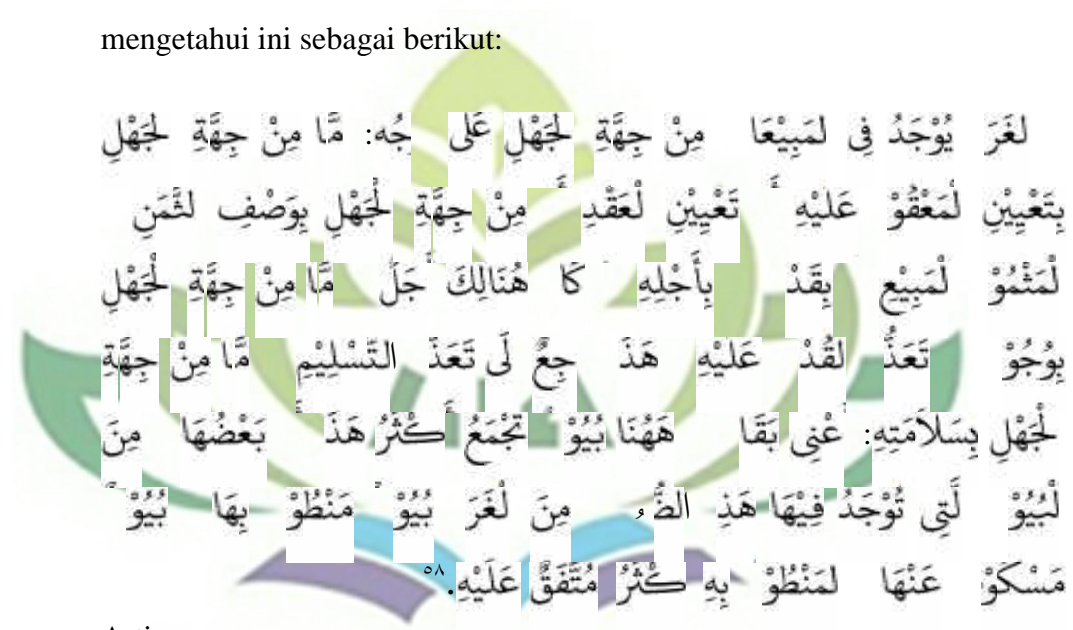 mengetahui ini sebagai berikut:
لغَرَ يُوْجَدُ فِى لمَبِيْعَا مِنْ جِهَّةِ لجَهْلِ عَلى جُه: مَّا مِنْ جِهَّةِ لجَهْلِ
بِتَعْيِيْنِ لْمَعْقُوْ عَلَيْهِ تَعْيِيْنِ لْعَقْدِ مِنْ جِهَّةِ لْجَهْلِ بِوَصْفِ لثَّمَنِ
لْمَثْمُوْ لْمَبِيْعِ بِقَدْ بِأَجْلِهِ كَا هُنَالِكَ جَلَ مَّا مِنْ جِهَّةِ لجَهْلِ
بِوُجُوْ تَعَذُّ لقُدْ عَلَيْهِ هَذَ جِعٌ لَى تَعَذَ التَّسْلِيْمِ مَّا مِنْ جِهَّةِ
لْجَهْلِ بِسَلاَمَتِهِ: عْنِى بَقَا هَهُنَا بُيُوْ تَجْمَعُ أَكْثَرُ هَذَ بَعْضُهَا مِنَ
لْبُيُوْ لَّتِى تُوْجَدُ فِيْهَا هَذِ الضُّ مِنَ لْغَرَ بُيُوْ مَنْطُوْ بِهَا بُيُوْ
مَسْكَوْ عَنْهَا لمَنْطُوْ بِهِ كْثَرُ مُتَّفَقٌ عَلَيْهِ.٥٨